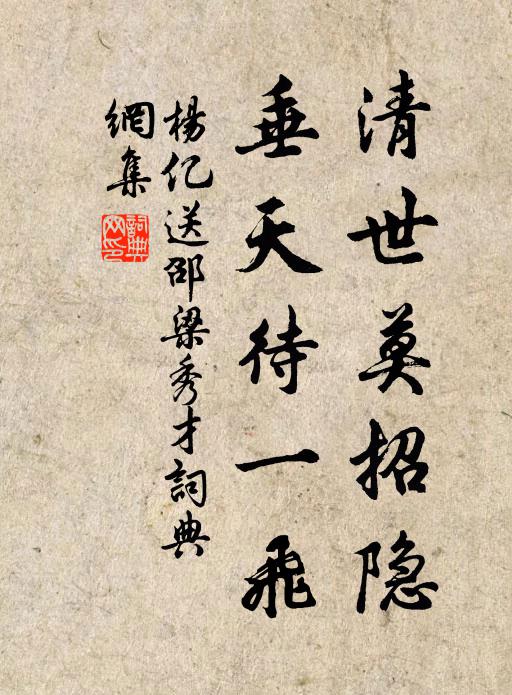 清世莫招隐
垂天待一飛
楊亿送邵梁秀才詞典
網集
詞典
网印